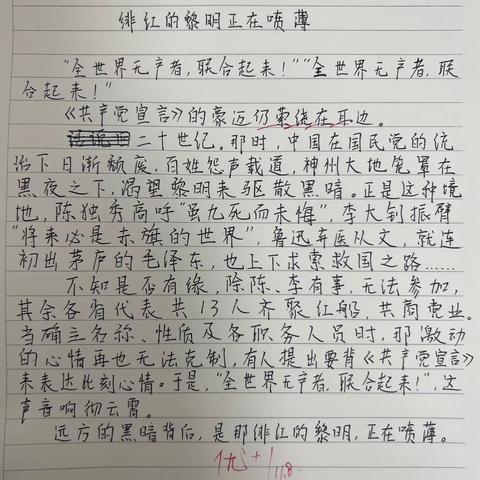 绯红的黎明正在喷薄
“全世界无产者,联合起来!”“全世界无产者,联
合起来!”
《共产党宣言》的豪迈仍萦绕在耳边。
二十世纪。那时,中国在国民党的统
治下日渐颓废,百姓怨声载道,神州大地笼罩在
黑夜之下,渴望黎明来驱散黑暗。正是这种境
地,陈独秀高呼“虽九死而未悔”,李大钊振臂
“将来必是赤旗的世界”,鲁迅弃医从文,就连
初出茅庐的毛泽东,也上下求索救国之路……
不知是否有缘,除陈、李有事,无法参加,
其余各省代表共13人齐聚红船,共商党业。
当确立名称、性质及各职务人员时,那激动
的心情再也无法克制,有人提出要背《共产党宣言》
来表达此刻心情。于是,“全世界无产者,联合起来!”,这
声音响彻云霄。
远方的黑暗背后,是那绯红的黎明,正在喷薄。
优+
11.8.